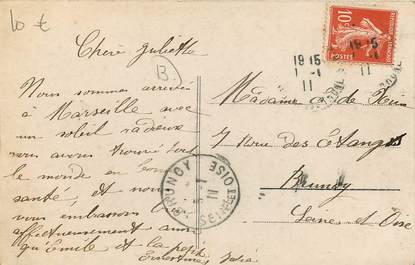 10 €
Chère Juliette
B.
Nous sommes arrivés
à Marseille avec
un soleil radieux
nous avons trouvé tout
le monde en bonne
santé, et nous
vous embrassons
affectueusement ainsi
qu'Emile et la petite
Ernestine
10c
19 15
1 -1
11
Madame de
7 Rue des Etangs
Brunoy
Seine et Oise
BRUNOY
1
11
SEINE ET OISE